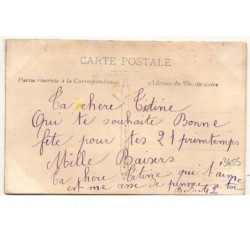 CARTE POSTALE
Partie réservée à la Correspondance Adresse du Destinataire
Ta chere Titine
Qui te souhaite Bonne
fête pour tes 21 printemps
Mille Baisers
Ta chère Titine qui t'aime
est me asse de pense a toi